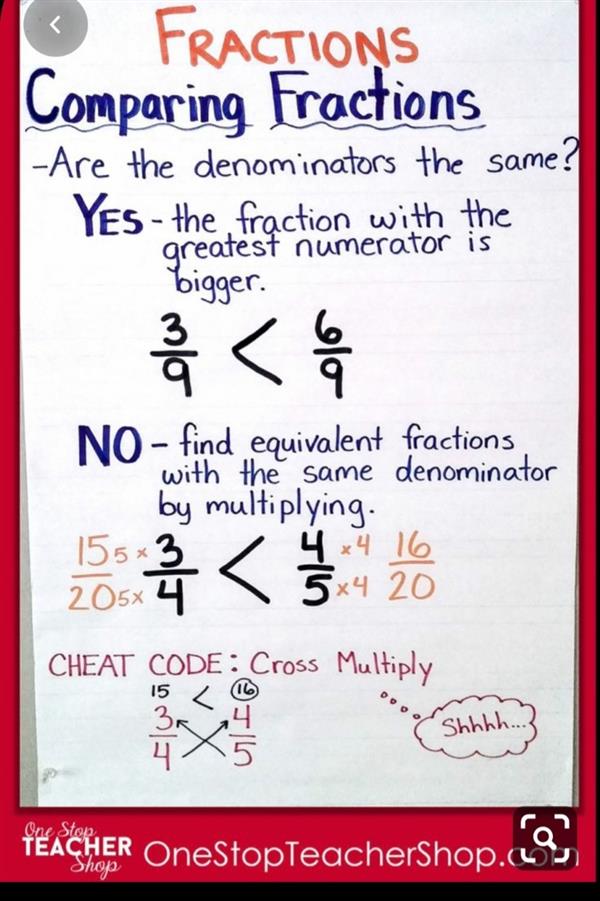 FRACTIONS
Comparing Fractions
-Are the denominators the same?
YES - the fraction with the
greatest numerator is
bigger.
3/9 < 6/9
NO - find equivalent fractions
with the same denominator
by multiplying.
15/20 5x 5x 3/4 < 4/5 x4 x4 16/20
CHEAT CODE: Cross Multiply
15 < 16
3/4 4/5
Shhhh...
One Stop
TEACHER
Shop
OneStopTeacherShop.com